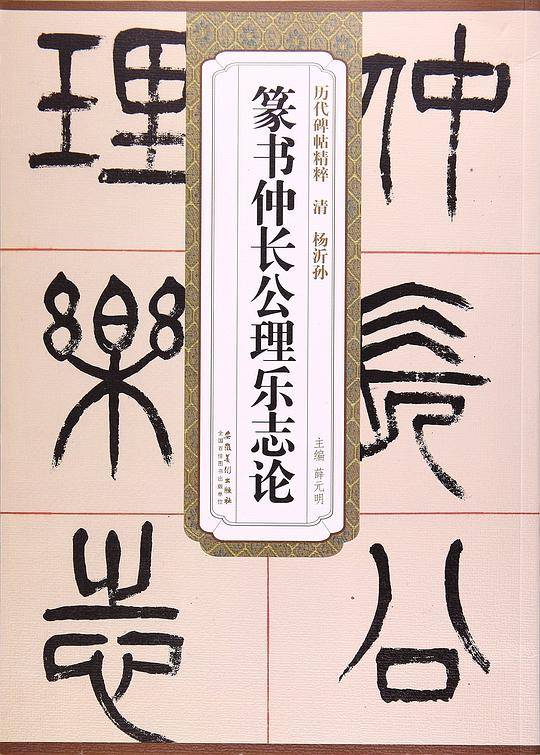 仲長公
理樂志
历代碑帖精粹 清 杨沂孙
篆书仲长公理乐志论
主编 薛元明
安徽美术出版社
全国百佳图书出版单位